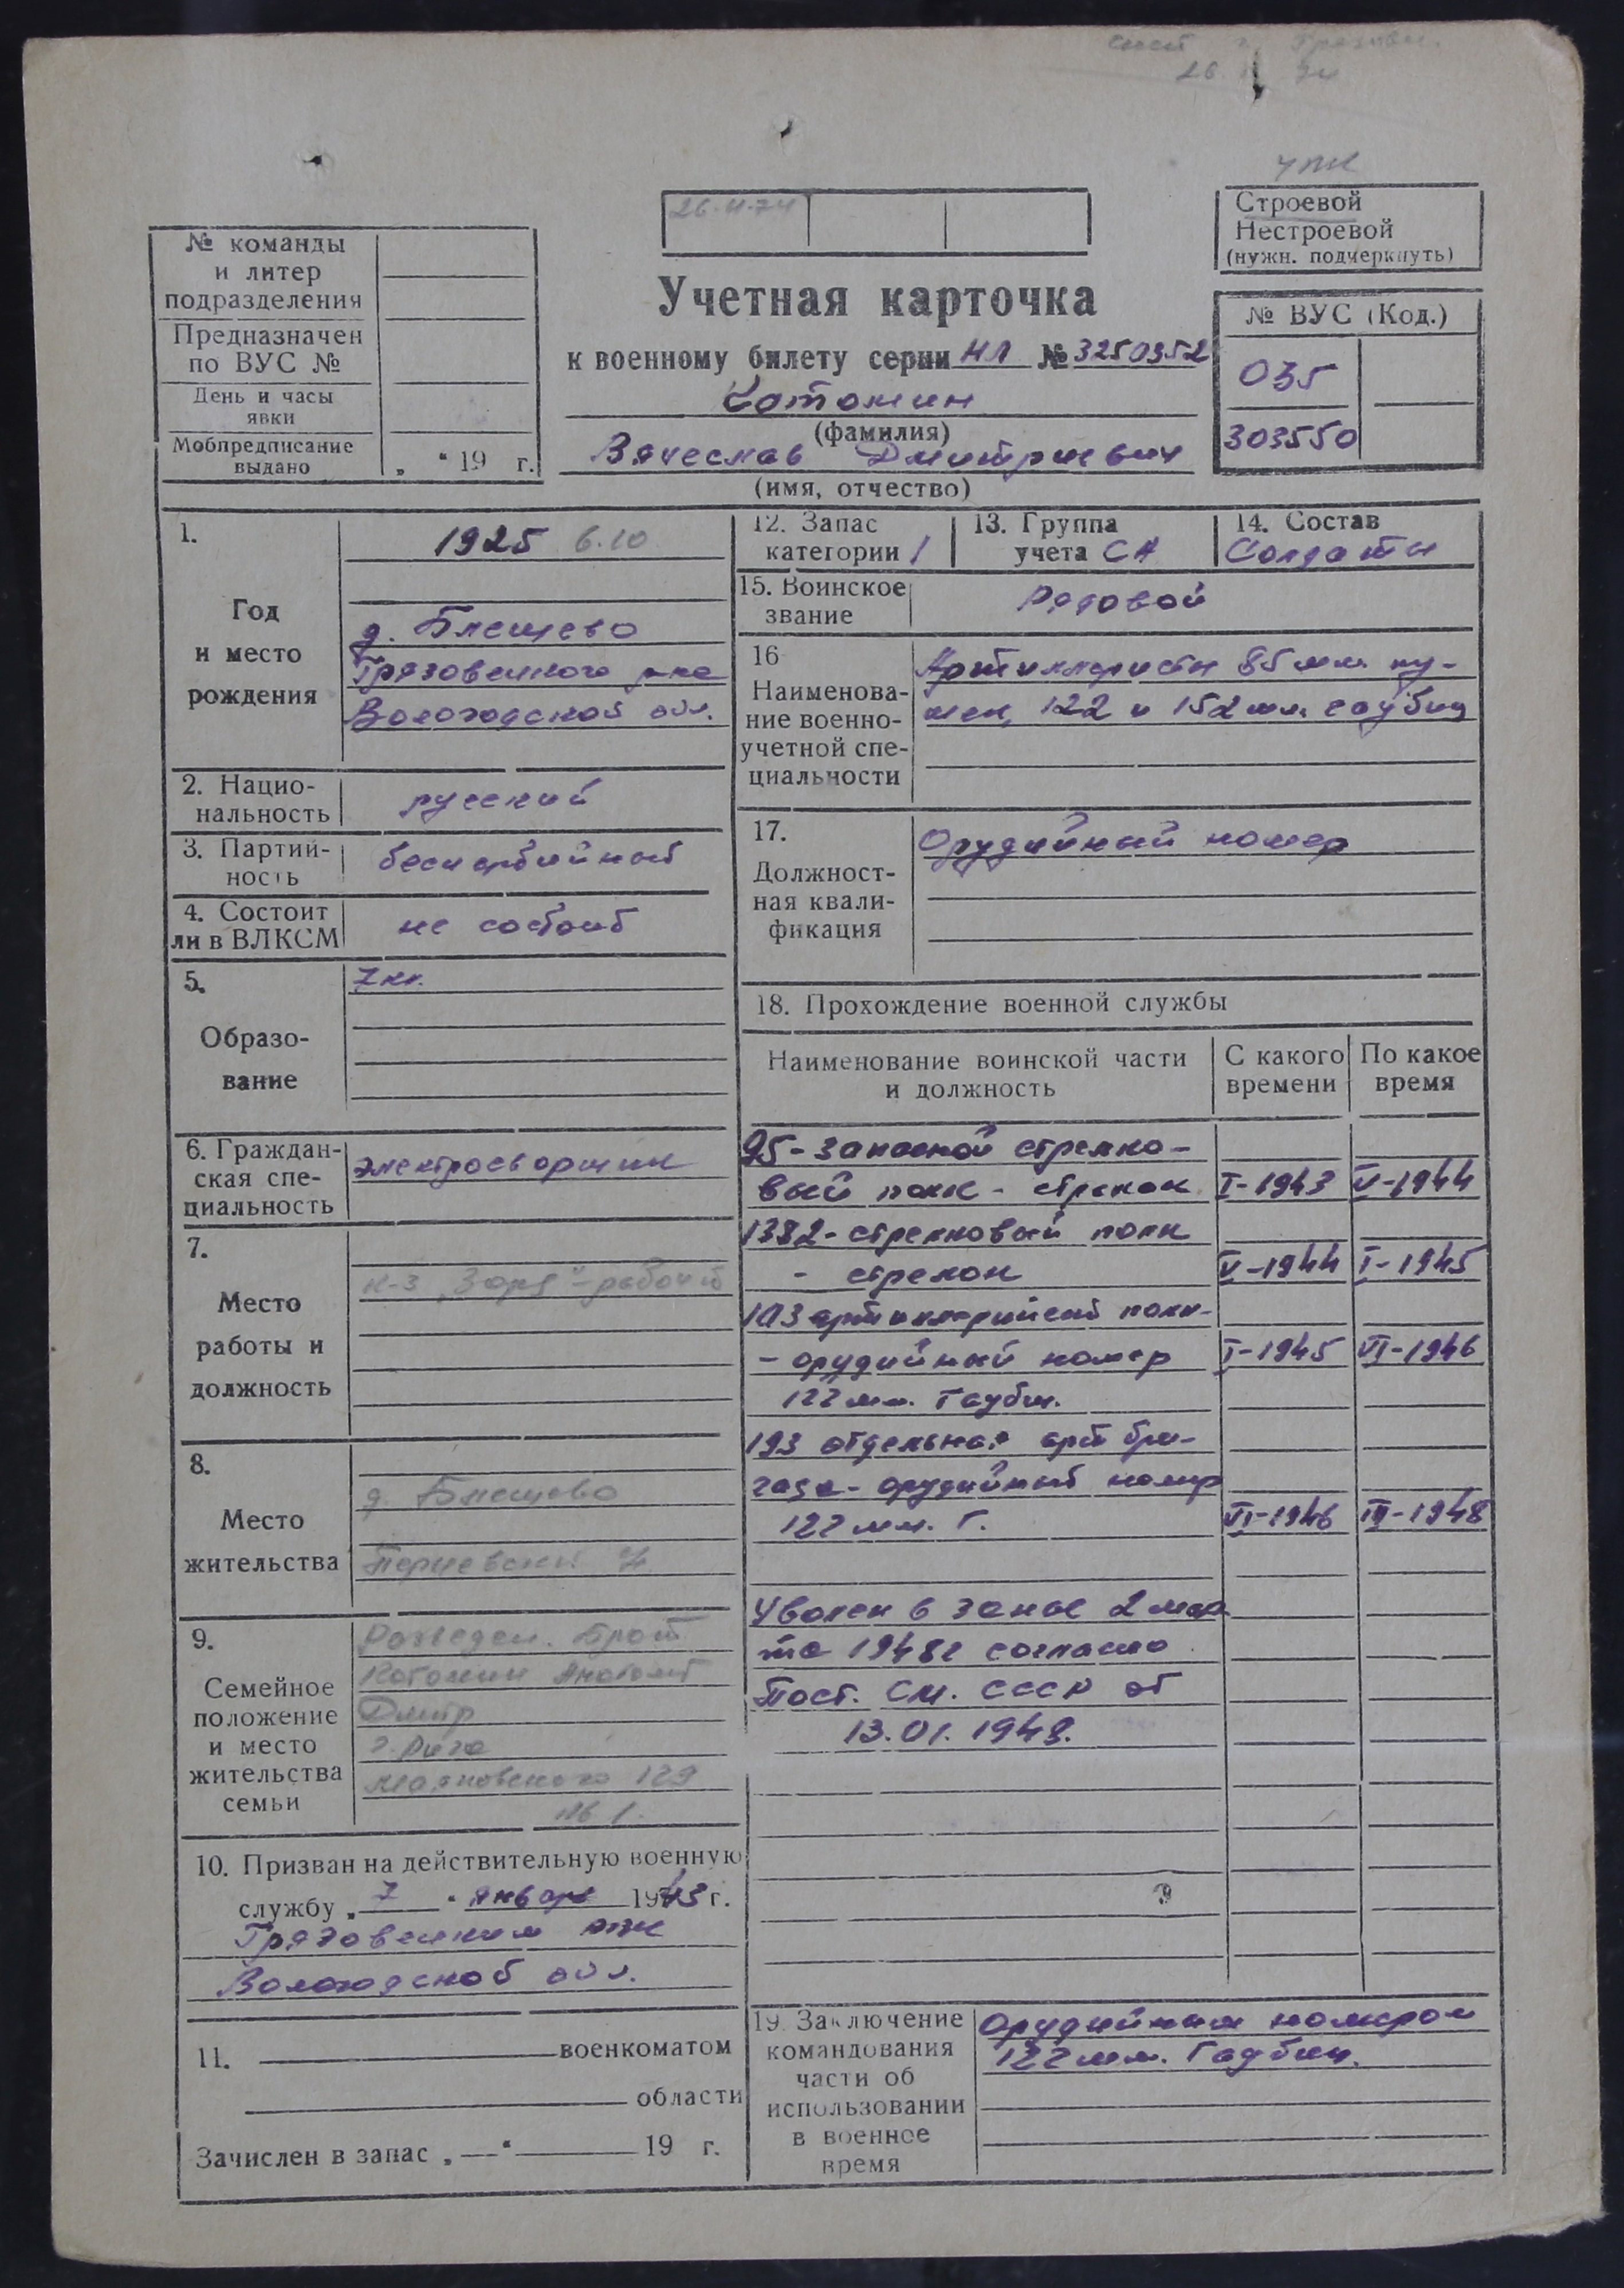 26.
26.11.74
Строевой
Нестроевой
(нужн. подчеркнуть)
№ команды
и литер
подразделения
Предназначен
по ВУС №
День и часы
явки
Мобпредписание
выдано „ “ 19 г.
Учетная карточка
к военному билету серии НЛ № 3250352
Котомин
(фамилия)
Вячеслав Дмитриевич
(имя, отчество)
№ ВУС (Код.)
035
303550
1.
Год
и место
рождения
1925 6.10
д. Блещево
Грязовецкого р-на
Вологодской обл.
2. Нацио-
нальность
русский
3. Партий-
ность
беспартийный
4. Состоит
ли в ВЛКСМ
не состоит
5.
Образо-
вание
7 кл.
6. Граждан-
ская спе-
циальность
электросварщик
7.
Место
работы и
должность
к-з „Заря“ - рабочий
8.
Место
жительства
д. Блещево
9.
Семейное
положение
и место
жительства
семьи
Разведен. Брат
Котомин Анатолий
Дмитр
г. Рига
Маяковского 129
10. Призван на действительную военную
службу „ 7 “ января 1943 г.
Грязовецким РВК
Вологодской обл.
11. военкоматом
области
Зачислен в запас „ — “ 19 г.
12. Запас
категории 1
13. Группа
учета СА
14. Состав
Солдаты
15. Воинское
звание
Рядовой
16
Наименова-
ние военно-
учетной спе-
циальности
Артиллеристы 85 мм. пу-
шек, 122 и 152 мм. гаубиц
17.
Должност-
ная квали-
фикация
Орудийный номер
18. Прохождение военной службы
Наименование воинской части
и должность
С какого
времени
По какое
время
95 - запасной стрелко-
вый полк - стрелок I-1943 V-1944
1382 - стрелковый полк
- стрелок V-1944 I-1945
103 артиллерийский полк-
- орудийный номер I-1945 VI-1946
122 мм. Гаубиц.
193 отдельная арт бри-
гада - орудийный номер
122 мм. Г. VI-1946 III-1948
Уволен в запас 2 мар
та 1948г согласно
Пост. СМ. СССР от
13.01.1948.
19. Заключение
командования
части об
использовании
в военное
время
Орудийным номером
122 мм. Гаубиц.